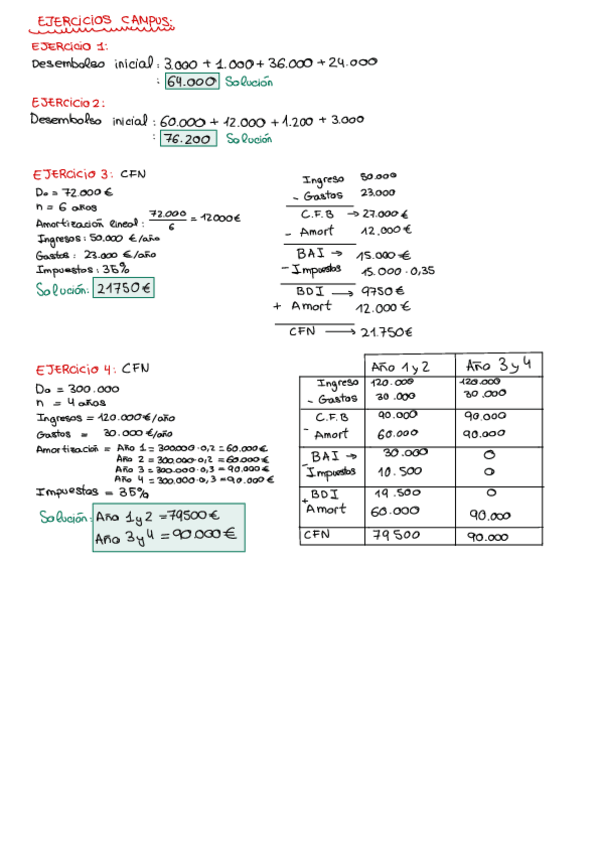 EJERCICIOS CAMPUS:
EJERCICIO 1:
Desembolso inicial: 3.000 + 1.000 + 36.000 + 24.000
: 64.000 Solución
EJERCICIO 2:
Desembolso inicial: 60.000 + 12.000 + 1.200 + 3.000
: 76.200 Solución
EJERCICIO 3: CFN
Do = 72.000 €
n = 6 años
Amortización lineal: 72.000 / 6 = 12000 €
Ingresos: 50.000 €/año
Gastos: 23.000 €/año
Impuestos: 35%
Solución: 21750 €
Ingreso 50.000
- Gastos 23.000
C.F.B → 27.000 €
- Amort 12.000 €
BAI → 15.000 €
- Impuestos 15.000 · 0,35
BDI → 9750 €
+ Amort 12.000 €
CFN → 21.750 €
EJERCICIO 4: CFN
Do = 300.000
n = 4 años
Ingresos = 120.000 €/año
Gastos = 30.000 €/año
Amortización = Año 1 = 300000 · 0,2 = 60.000 €
Año 2 = 300.000 · 0,2 = 60.000 €
Año 3 = 300.000 · 0,3 = 90.000 €
Año 4 = 300.000 · 0,3 = 90.000 €
Impuestos = 35%
Solución: Año 1 y 2 = 79500 €
Año 3 y 4 = 90.000 €
Año 1 y 2 Año 3 y 4
Ingreso 120.000 120.000
- Gastos 30.000 30.000
C.F.B 90.000 90.000
- Amort 60.000 90.000
BAI → 30.000 0
- Impuestos 10.500 0
BDI 19.500 0
+ Amort 60.000 90.000
CFN 79500 90.000